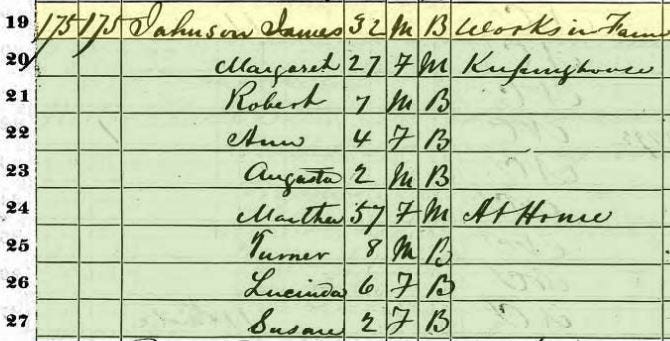 19 175 175 Johnson James 32 M B Works in Farm
20 Margaret 27 F M Keepinghouse
21 Robert 7 M B
22 Ann 4 F B
23 Augusta 2 M B
24 Marthea 57 F M At Home
25 Turner 8 M B
26 Lucinda 6 F B
27 Susan 2 F B